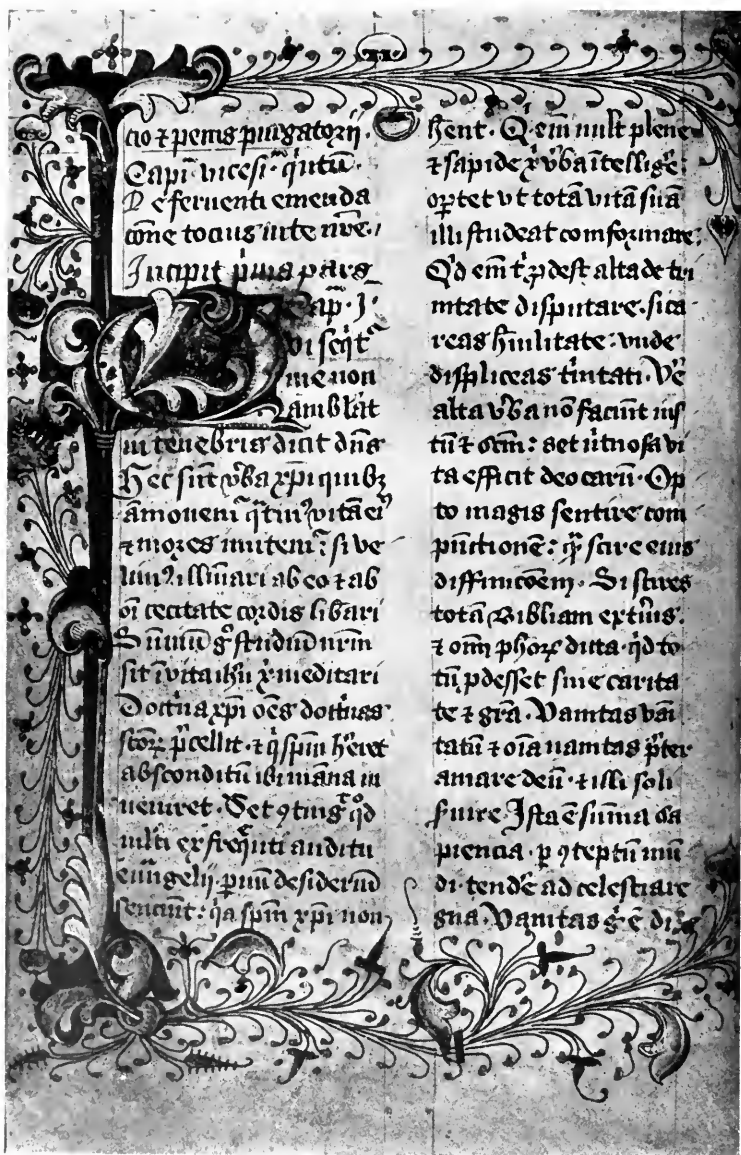 cio ⁊ penis purgatorij.
Capi. vicesi. q̈̄tū.
De feruenti emenda
cōne tocius uite nr̄e.
Incipit p̄ma pars
Cap. I.
Qui seq̄t̄
me non
ambl̄at
in tenebris dicit dn̄s
Hec sūt v̄ba xp̄i quibꝫ
amonem̄ q̄tin⁹ vitā ei⁹
⁊ mores imitem̄: si ve
lim⁹ illīnari ab eo ⁊ ab
oī cecitate cordis libari
Sūmū g° studiū nr̄m
sit ī vita ih̄u x̄ meditari
Doctͥna xp̄i oēs doctͥnas
sc̄oꝝ p̄cellit. ⁊ q̇ spm̄ h̄eret
absconditū ibi māna in
ueniret. Set ꝯting̅ q̊d
ml̄ti ex freq̄nti auditu
euāgelij ꝑuū desideriū
senciūt: q̇a spm̄ xp̄i non
hn̄t. Q̇ em̄ uult plene
⁊ sapide x̄ v̄ba ītellige᷒
oꝑtet vt totā vitā suā
illi studeat comformare:
Q̇d em̄ t̄ ꝓdest alta de tri
nitate disputare. si ca
reas hūilitate: vnde
displiceas tͥnitati. Ve᷒
alta v̄ba nō faciūt ius
tū ⁊ sc̄m: set v̄tuosa vi
ta efficit deo carū. Op
to magis sentire com
pūctionē: q̄̊ scire eius
diffinicōem. Si scires
totā Bibliam exteri⁹.
⁊ omī ph̄oꝝ dicta. q̇d to
tū ꝓdesset sine carita
te ⁊ gr̄a. Vanitas vāi
tatū ⁊ oīa uanitas p̄ter
amare deū. ⁊ illi soli
ẜuire. Ista ē sūma sa
piencia. ꝑ ꝯteptū mū
di. tende᷒ ad celestia re
gna. Vanitas g̊ ē